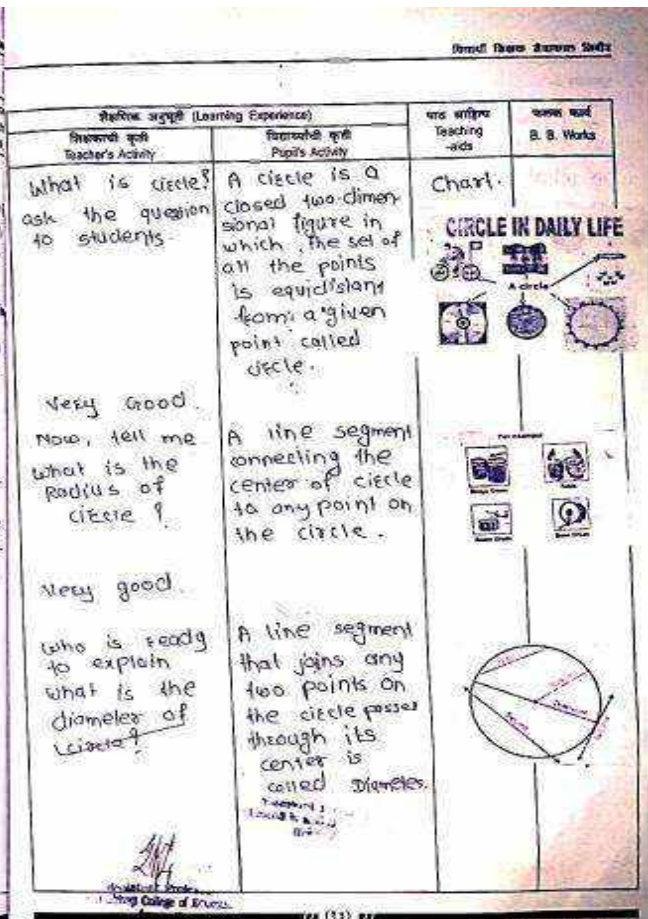 शैक्षणिक अनुभूती (Learning Experience)
शिक्षकाची कृती
Teacher's Activity
विद्यार्थ्याची कृती
Pupil's Activity
पाठ साहित्य
Teaching
-aids
फलक कार्य
B. B. Works
What is circle?
ask the question
to students.
A circle is a
closed two-dimen
sional figure in
which, the set of
all the points
is equidistant
from a given
point called
circle.
Chart.
CIRCLE IN DAILY LIFE
A circle
Very Good.
Now, tell me
what is the
Radius of
circle ?
A line segment
connecting the
center of circle
to any point on
the circle.
Very good.
who is ready
to explain
what is the
diameter of
circle?
A line segment
that joins any
two points on
the circle passes
through its
center is
called Diameter.
College of
(33)